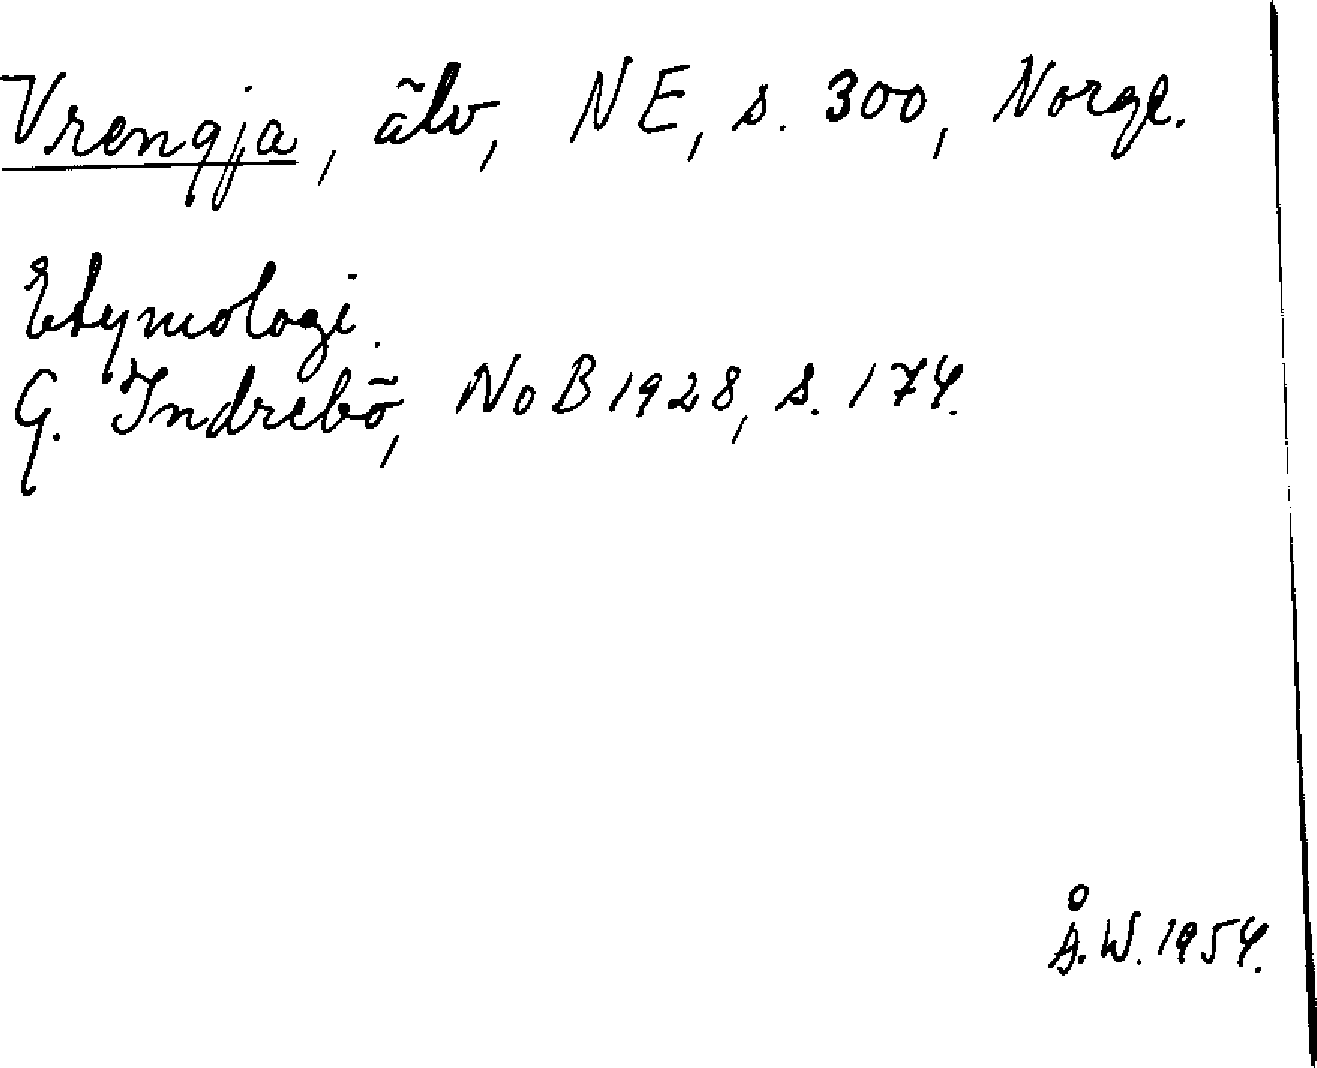 Vrengja, älv, NE, s. 300, Norge.
Etymologi.
G. Indrebö, NoB 1928, s. 174.
Å.W. 1954.